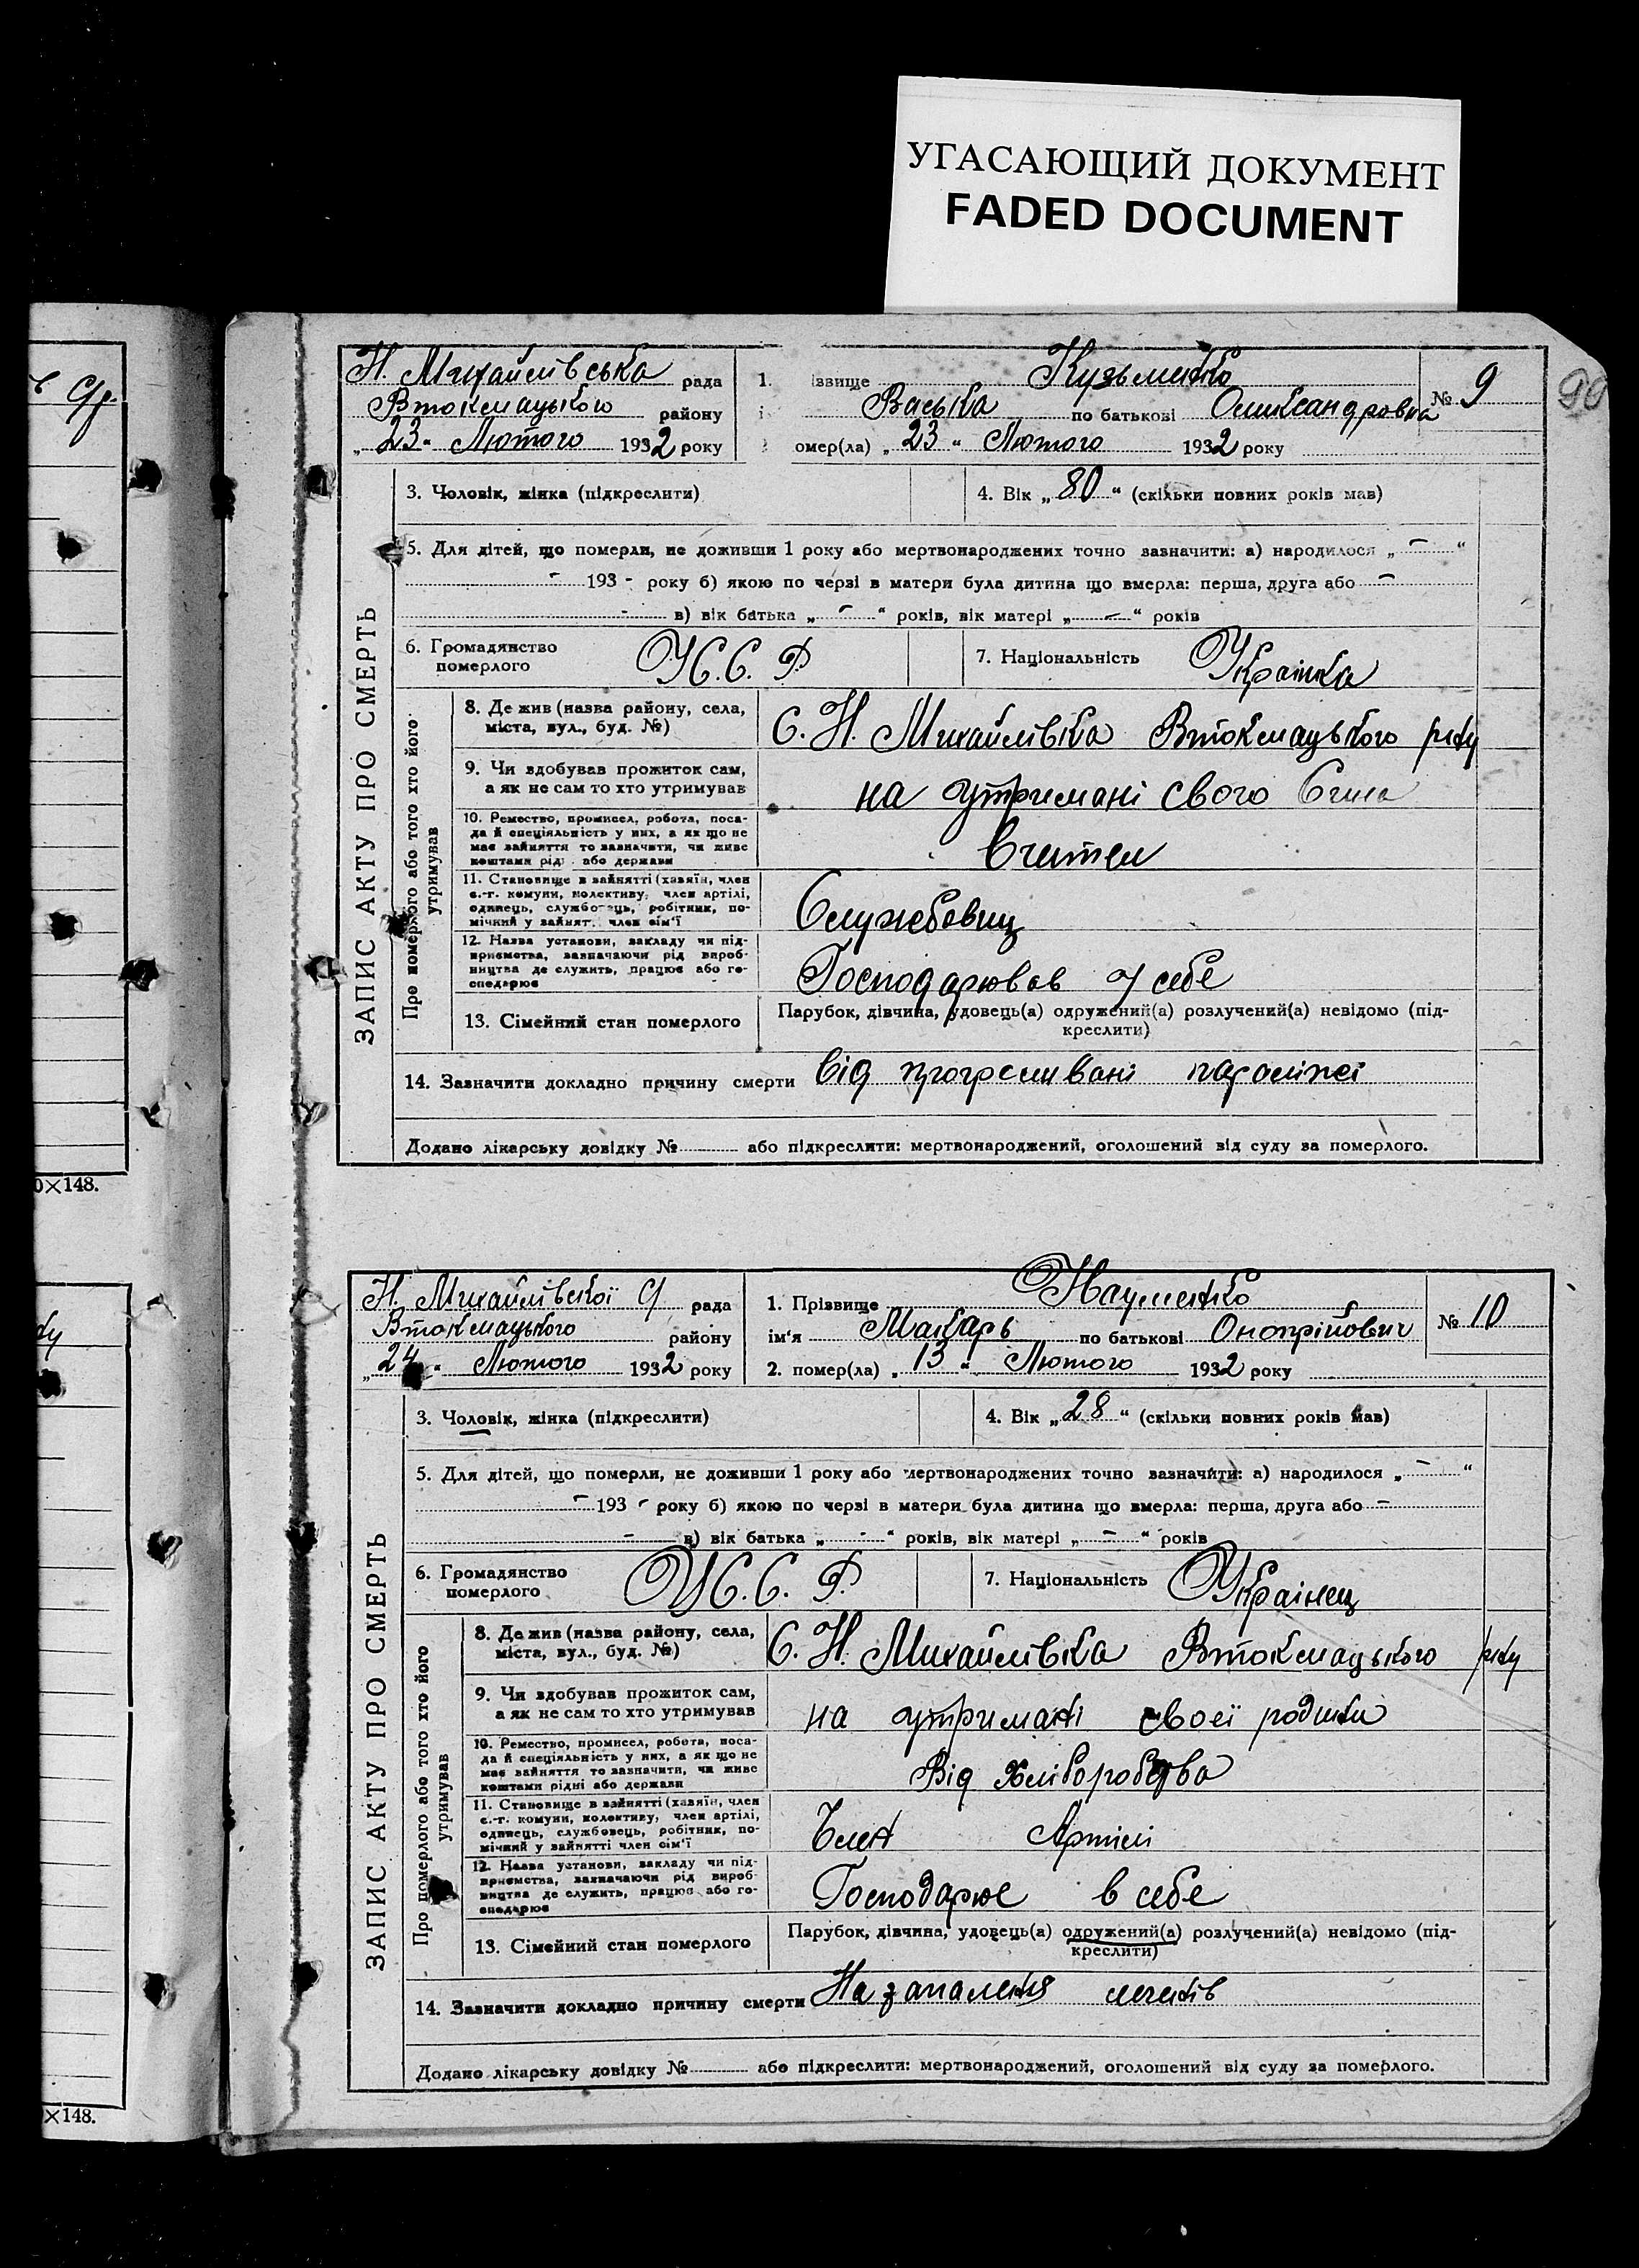 УГАСАЮЩИЙ ДОКУМЕНТ
FADED DOCUMENT
90
Н. Михайлівська рада
Втокмацького району
„23“ Лютого 1932 року
1. ізвище Кузьменко
Васька по батькові Олександровна
омер(ла) „23“ Лютого 1932 року
№ 9
ЗАПИС АКТУ ПРО СМЕРТЬ
3. Чоловік, жінка (підкреслити)
4. Вік „80“ (скільки повних років мав)
5. Для дітей, що померли, не доживши 1 року або мертвонароджених точно зазначити: а) народилося „-“
- 193 - року б) якою по черзі в матери була дитина що вмерла: перша, друга або -
- в) вік батька „-“ років, вік матері „-“ років
6. Громадянство
померлого
У.С.С.Р.
7. Національність Українка
Про померлого або того хто його
утримував
8. Де жив (назва району, села,
міста, вул., буд. №)
С. Н. Михайлівка Втокмацького р-ну
9. Чи здобував прожиток сам,
а як не сам то хто утримував
на утримані свого Сина
10. Ремество, промисел, робота, поса-
да й спеціяльність у них, а як що не
має зайняття то зазначити, чи живе
коштами рід або держави
Вчител
11. Становище в зайнятті (хазяїн, член
с.-г. комуни, колективу, член артілі,
одинець, службовець, робітник, по-
мічний у зайнят. член сім'ї
Службовиц
12. Назва установи, закладу чи під-
приємства, зазначаючи рід вироб-
ництва де служить, працює або го-
сподарює
Господарював у себе
13. Сімейний стан померлого
Парубок, дівчина, удовець(а) одружений(а) розлучений(а) невідомо (під-
креслити)
14. Зазначити докладно причину смерти від прогресивані параліжі
Додано лікарську довідку № або підкреслити: мертвонароджений, оголошений від суду за померлого.
0×148.
Н. Михайлівської С/ рада
Втокмацького району
„24“ Лютого 1932 року
1. Прізвище Науменко
ім'я Макарь по батькові Онопрійович
2. помер(ла) „13“ Лютого 1932 року
№ 10
ЗАПИС АКТУ ПРО СМЕРТЬ
3. Чоловік, жінка (підкреслити)
4. Вік „28“ (скільки повних років мав)
5. Для дітей, що померли, не доживши 1 року або мертвонароджених точно зазначити: а) народилося „-“
- 193 - року б) якою по черзі в матери була дитина що вмерла: перша, друга або -
- в) вік батька „-“ років, вік матері „-“ років
6. Громадянство
померлого
У.С.С.Р.
7. Національність Українец
Про померлого або того хто його
утримував
8. Де жив (назва району, села,
міста, вул., буд. №)
С. Н. Михайлівка Втокмацького р-ну
9. Чи здобував прожиток сам,
а як не сам то хто утримував
на утримані своєї родини
10. Ремество, промисел, робота, поса-
да й спеціяльність у них, а як що не
має зайняття то зазначити, чи живе
коштами рідні або держави
Від хліборобства
11. Становище в зайнятті (хазяїн, член
с.-г. комуни, колективу, член артілі,
одинець, службовець, робітник, по-
мічний у зайнятті член сім'ї
Член Артілі
12. Назва установи, закладу чи під-
приємства, зазначаючи рід вироб-
ництва де служить, працює або го-
сподарює
Господарює в себе
13. Сімейний стан померлого
Парубок, дівчина, удовець(а) одружений(а) розлучений(а) невідомо (під-
креслити)
14. Зазначити докладно причину смерти На запаленя легенів
Додано лікарську довідку № або підкреслити: мертвонароджений, оголошений від суду за померлого.
×148.